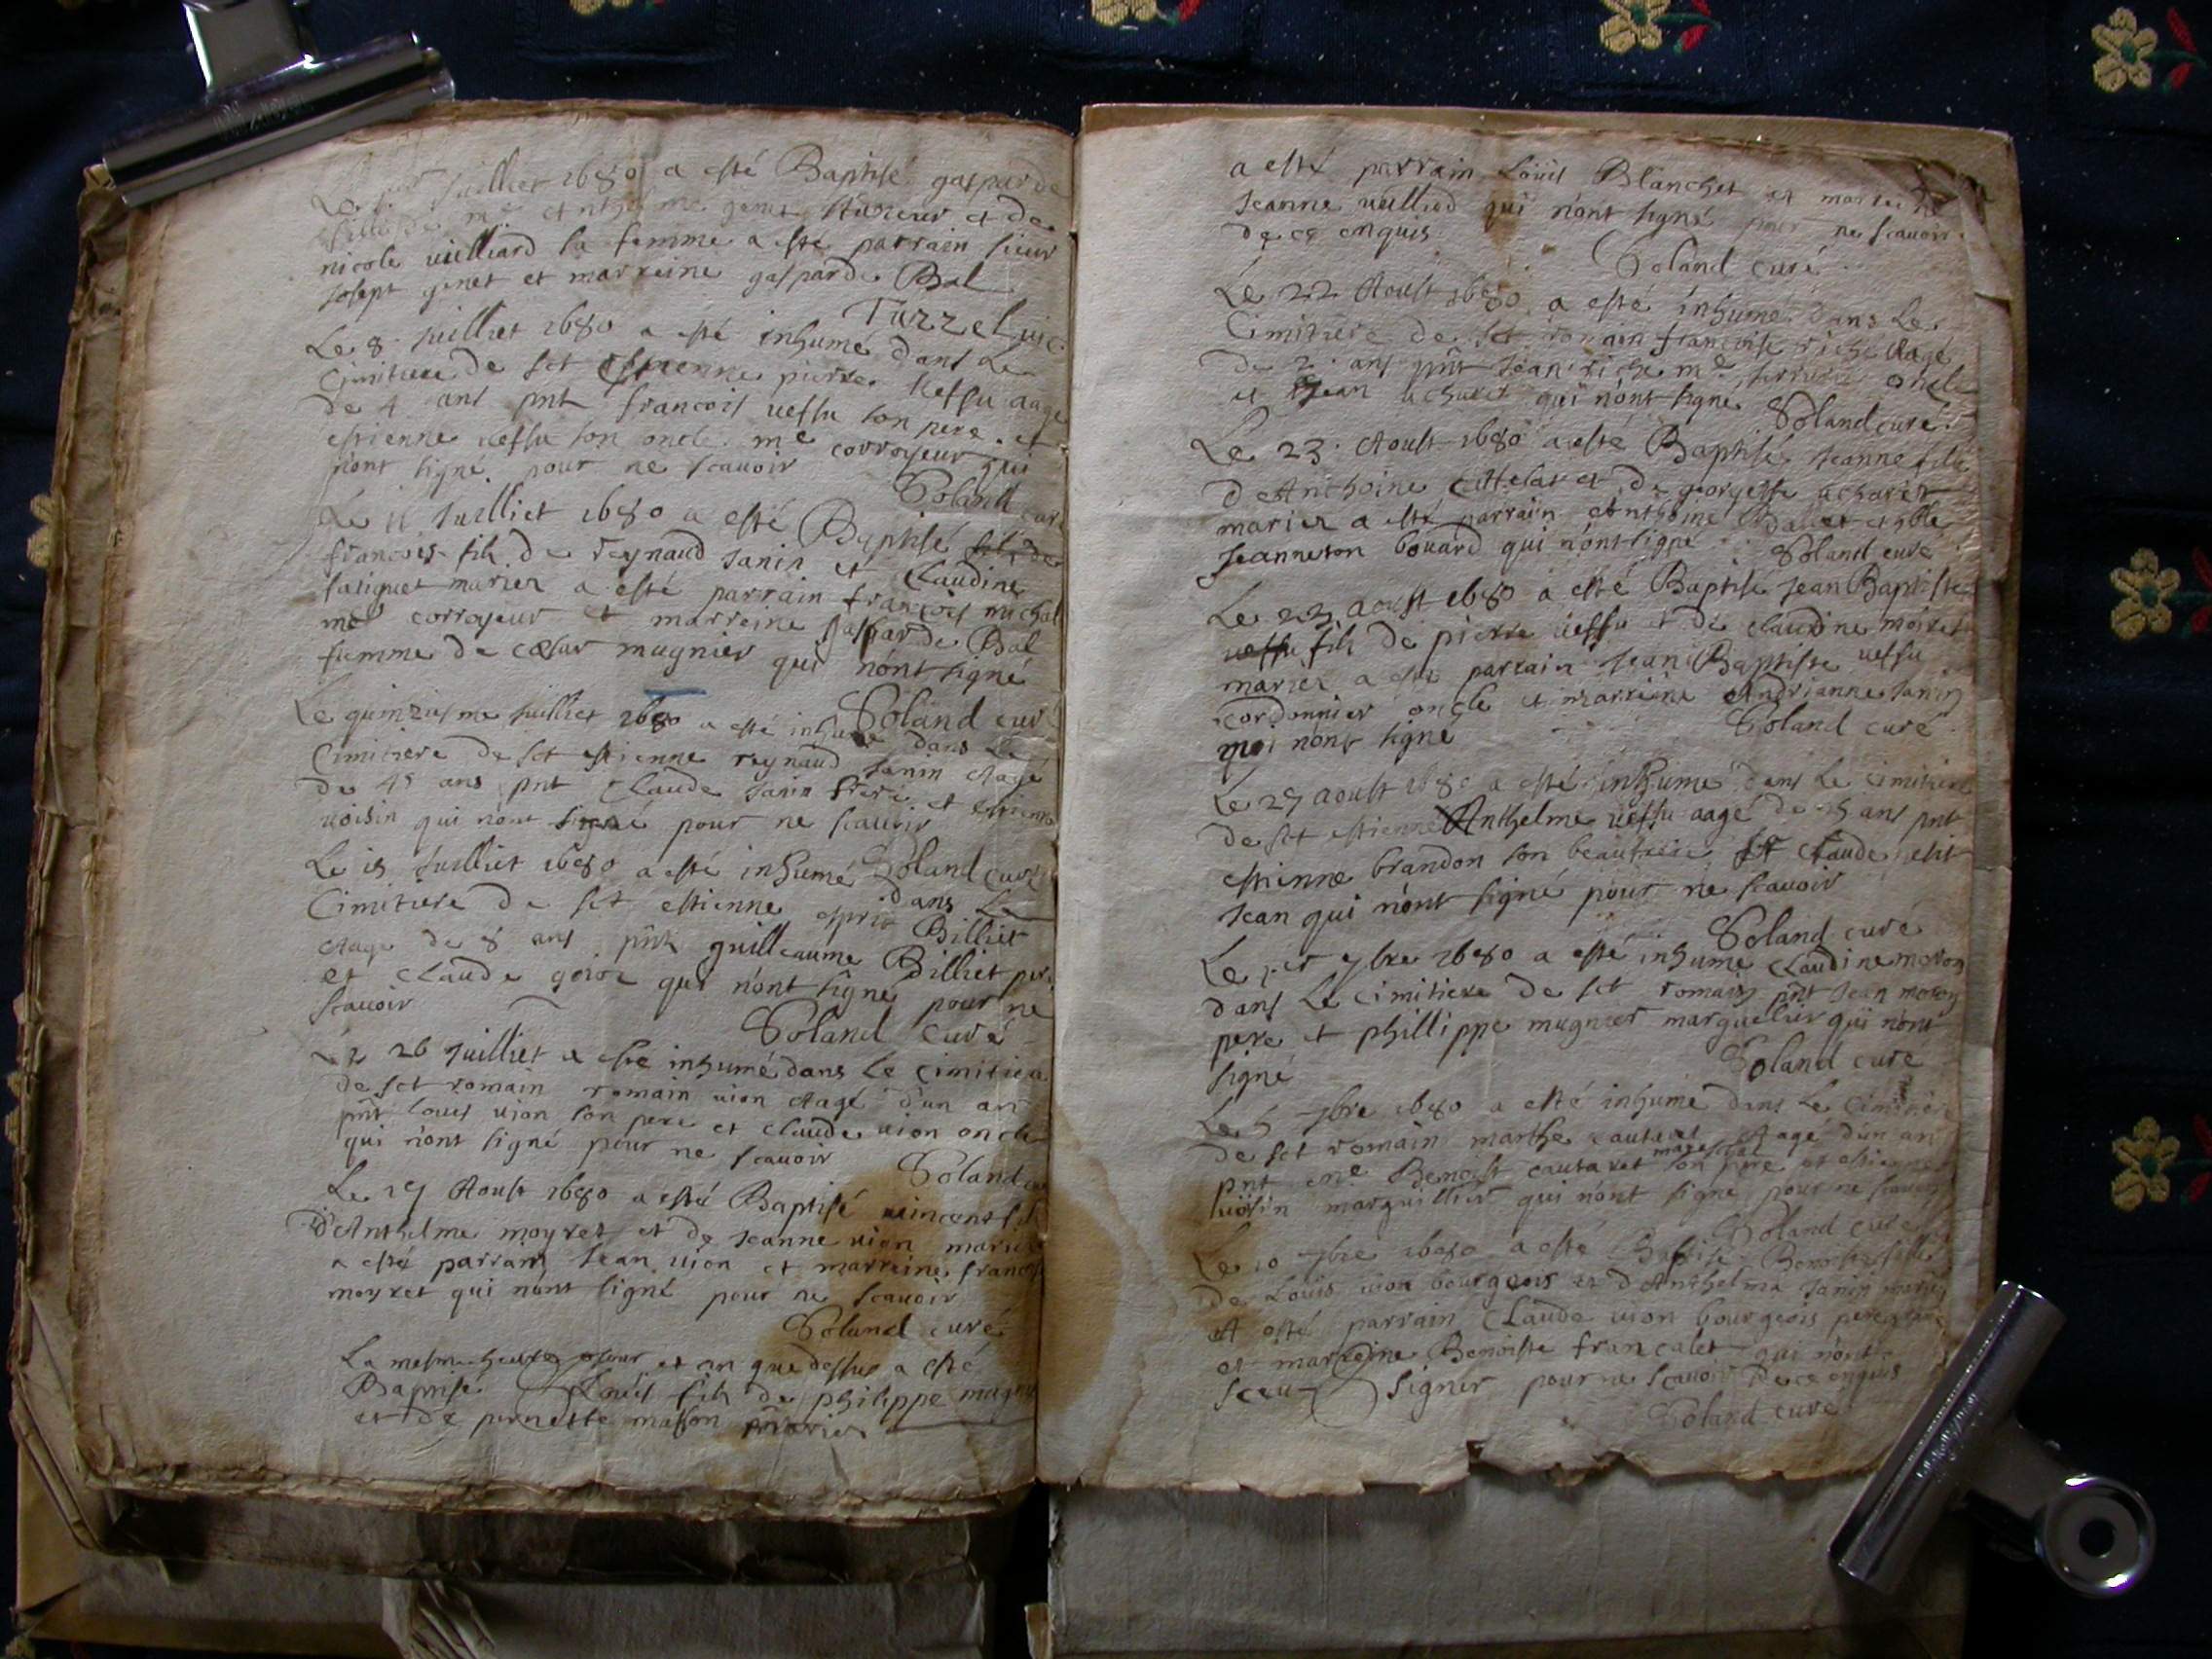 Le juilliet 1680 a esté Baptisé gasparde
fille de me genet et de
nicole uulliard sa femme a esté parrain sieur
Joseph genet et marreine gasparde Bal
Turrel uic
Le 8 juilliet 1680 a esté inhumé dans Le
Cimitiere de sct Estienne pierre uessu aagé
de 4 ans pnt francois uessu son pere et
estienne uessu son oncle me corroyeur qui
n'ont signé pour ne scauoir
Soland curé
Le 11 Juilliet 1680 a esté Baptisé
francois fils de reynaud Janin et Claudine
marier a esté parrain francois michal
me corroyeur et marreine gasparde Bal
femme de cæsar mugnier qui n'ont signé
Soland curé
Le quinziesme juilliet 1680 a esté inhumé dans Le
Cimitiere de sct estienne reynaud Janin Aagé
de 45 ans pnt Claude Janin frere et estienne
uoisin qui n'ont signé pour ne scauoir
Soland curé
Le 15 Juilliet 1680 a esté inhumé dans Le
Cimitiere de sct estienne esprit Billiet
Aagé de 8 ans pnt guilleaume Billiet pere
et Claude goioz qui n'ont signé pour ne
scauoir
Soland curé
Le 26 Juilliet a esté inhumé dans Le Cimitiere
de sct romain romain uion Aagé d'un an
pnt Louis uion son pere et Claude uion oncle
qui n'ont signé pour ne scauoir
Soland
Le Aoust 1680 a esté Baptisé uincent fils
d'Anthelme moyret et de Jeanne uion marier
a esté parrain Jean uion et marreine francoise
moyret qui n'ont signé pour ne scauoir
Soland curé
La mesme et an que dessus a esté
Baptisé Louis fils de philippe mugnier
et de pernette masson marier
a esté parrain Louis Blanchet et marreine
Jeanne uulliod qui n'ont signé pour ne scauoir
de ce enquis
Soland curé
Le 22 Aoust 1680 a esté inhumé dans Le
Cimitiere de sct romain francoise riche Aagé
de 2 ans pnt Jean riche me serrurier oncle
et Jean acharet qui n'ont signe
Soland curé
Le 23 Aoust 1680 a esté Baptisé Jeanne fille
d'Anthoine et de georgesse acharet
marier a esté parrain Anthoine
Jeanneton bouard qui n'ont signé
Soland curé
Le 23 aoust 1680 a esté Baptisé Jean Baptiste
uessu fils de pierre uessu et de Claudine moiret
marier a esté parrain Jean Baptiste uessu
cordonnier oncle et marreine Andrianne Janin
qui n'ont signé
Soland curé
Le 27 aoust 1680 a esté inhumé dans Le Cimitiere
de sct estienne Anthelme uessu aagé de ans pnt
estienne brandon son beaufrere et Claude petit
Jean qui n'ont signé pour ne scauoir
Soland curé
Le 1er 7bre 1680 a esté inhumé Claudine moron
dans Le Cimitiere de sct romain pnt Jean moron
pere et phillippe mugnier marguelier qui n'ont
signé
Soland curé
Le 5 7bre 1680 a esté inhumé dans Le Cimitiere
de sct romain marthe cautaret Aagé d'un an
pnt me Benoist cautaret mareschal son pere et estienne
uoisin marguillier qui n'ont signé pour ne scauoir
Soland curé
Le 10 7bre 1680 a esté Baptisé Benoiste fille
de Louis uion bourgeois et d'Anthelma Janin marier
A esté parrain Claude uion bourgeois
et marreine Benoiste francalet qui n'ont
sceu signer pour ne scauoir de ce enquis
Soland curé